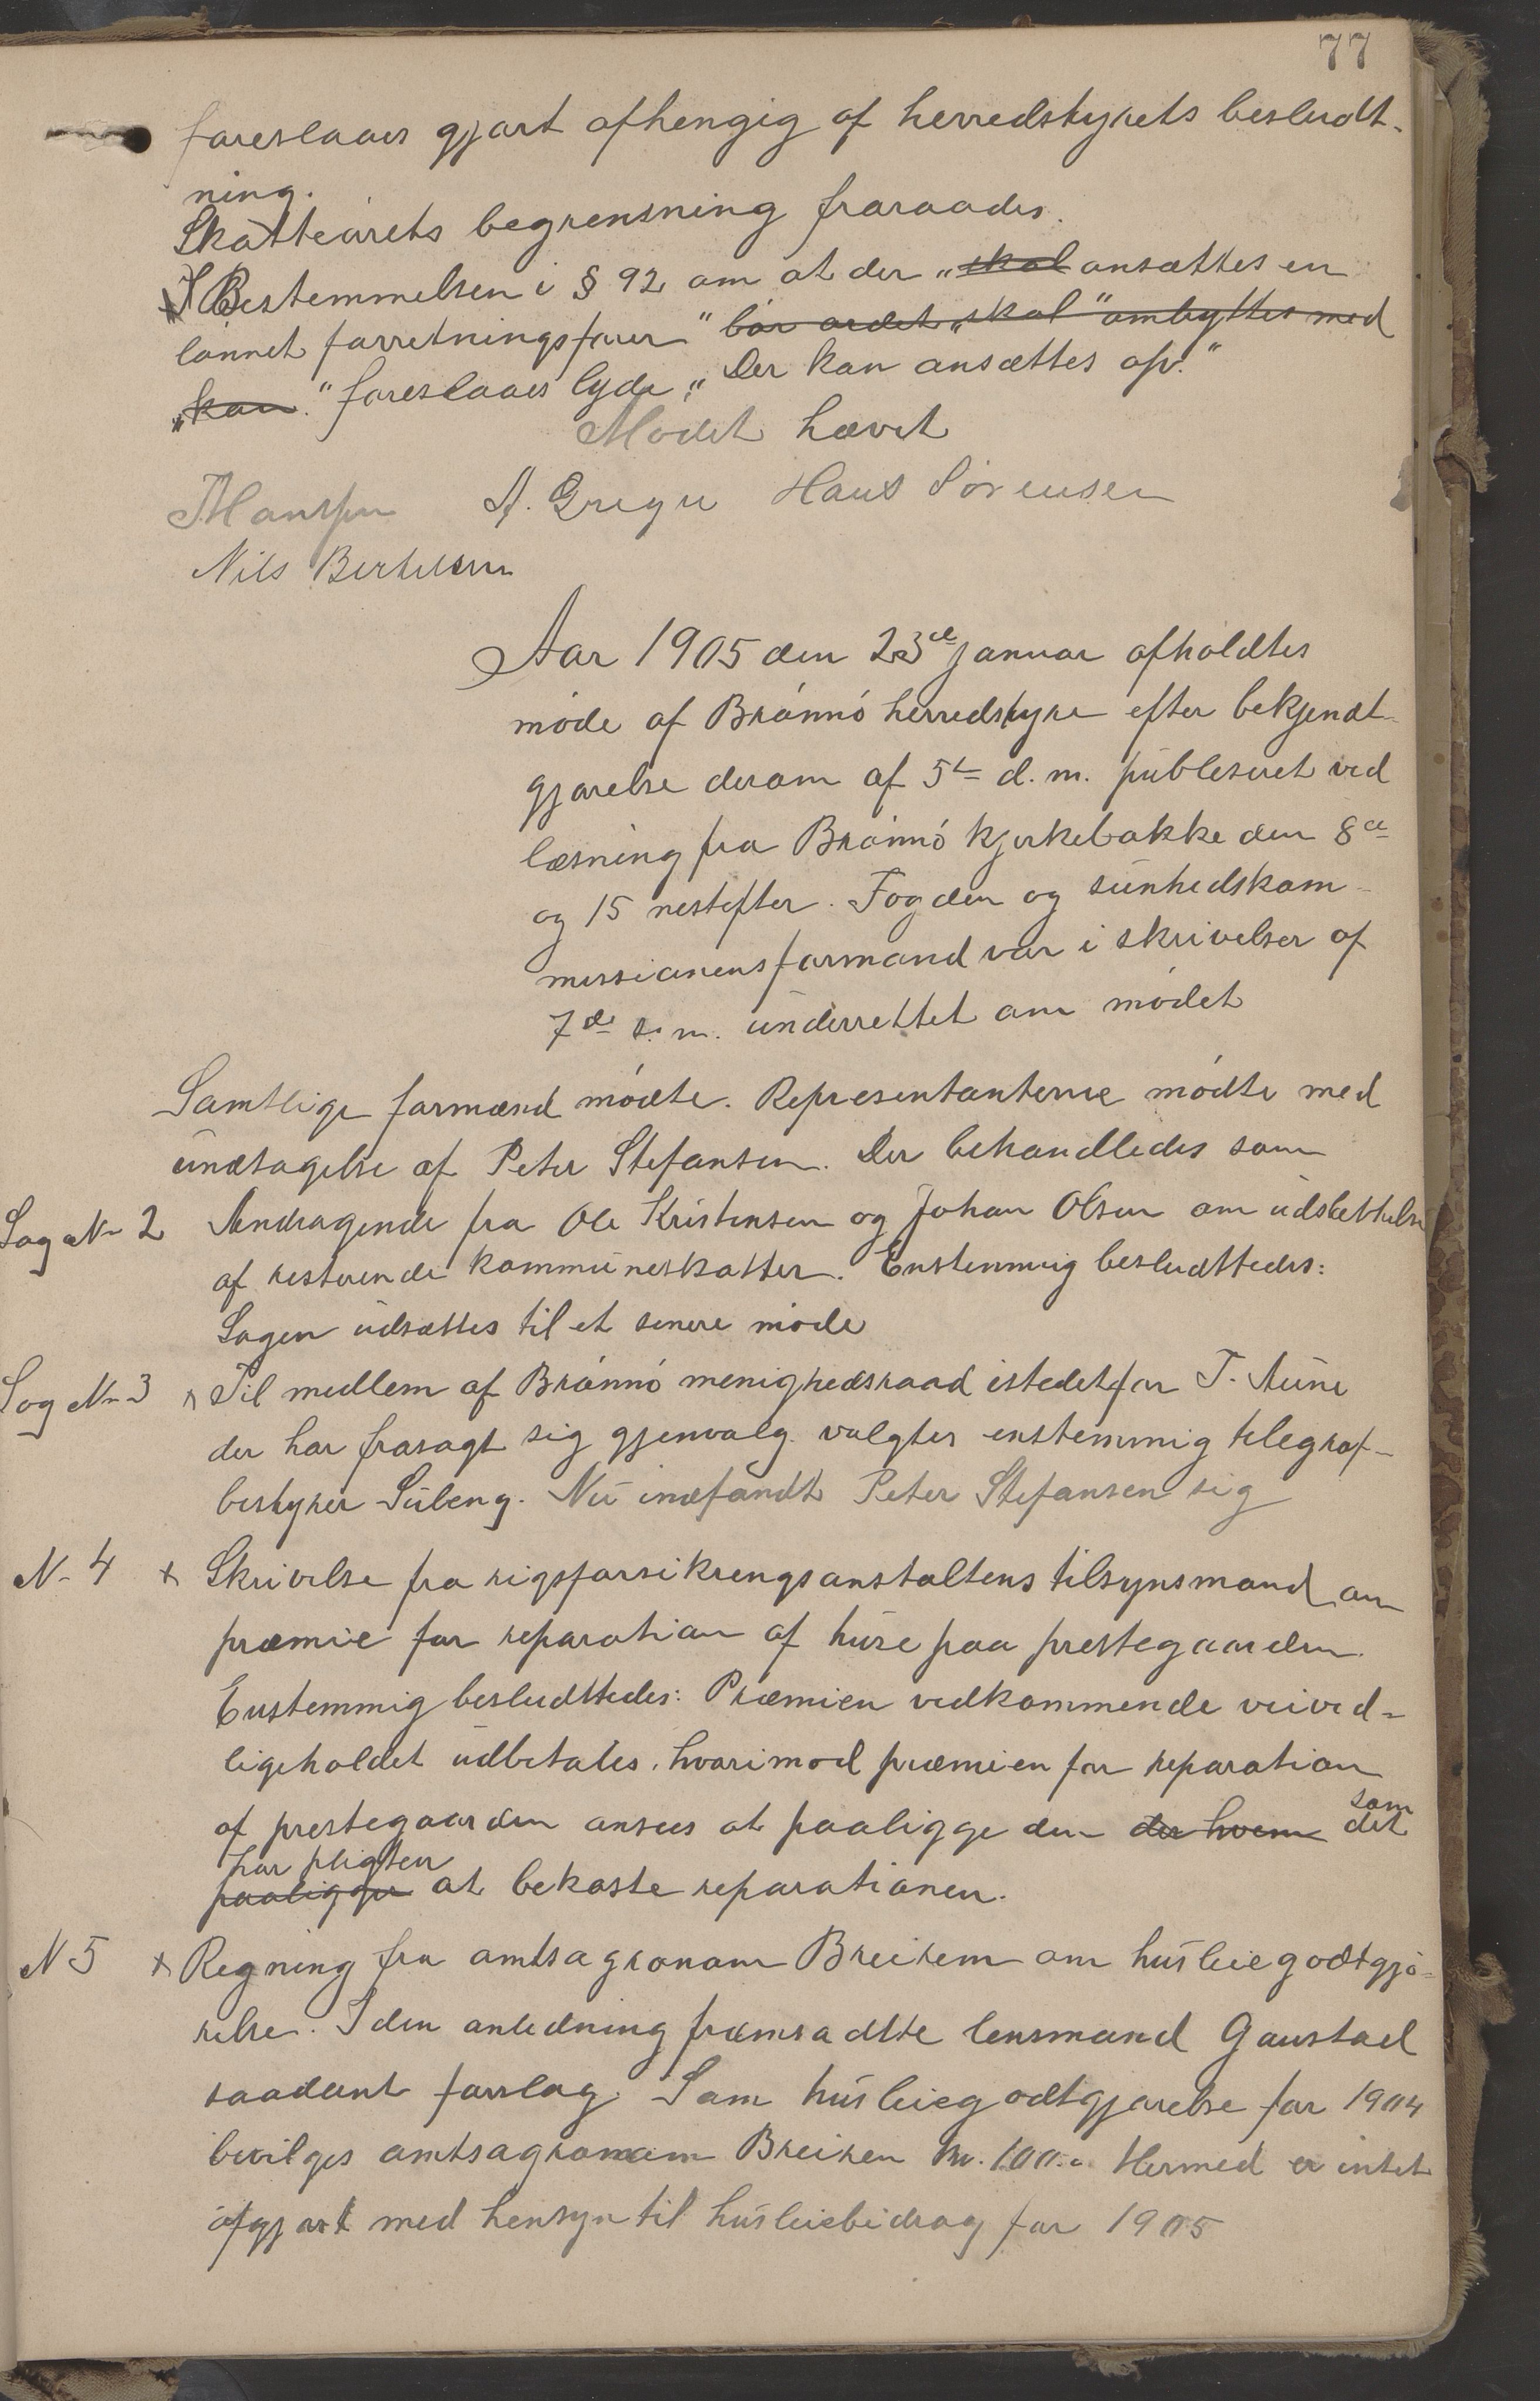 77
foreslaaes gjort afhengig af herredstyrets besludt-
ning.
Skatteårets begrensning fraraades.
I Bestemmelsen i § 92 om at der „skal ansættes en
lønnet forretningsfører" bør ordet „skal" ombyttes med
„kan." foreslaaes lyde „Der kan ansættes osv."
Mødet hævet
A. Gregu Hans Sørensen
Nils Bertelsen
Aar 1905 den 23de januar afholdtes
møde af Brønnø herredstyre efter bekjendt-
gjørelse derom af 5te d.m. publiseret ved
læsning fra Brønnø kjirkebakke den 8de
og 15 nestefter. Fogden og sunhedskom-
missionens formand var i skrivelser af
7de s.m. underrettet om mødet
Samtlige formænd mødte. Representanterne mødte med
undtagelse af Peter Stefansen. Der behandledes som
Sag No 2 Andragende fra Ole Kristensen og Johan Olsen om udslettelse
af resterende kommuneskatter. Enstemmig besludttedes:
Sagen udsættes til et senere møde
Sag No 3 x Til medlem af Brønnø menighedsraad istedetfor T. Aune
der har frasagt sig gjenvalg valgtes enstemmig telegraf-
bestyrer Suleng. Nu indfandt Peter Stefansen sig
No 4 x Skrivelse fra rigsforsikrengsanstaltens tilsynsmand om
præmie for reparation af huse paa prestegaarden.
Enstemmig besludttedes: Præmien vedkommende veived-
ligeholdet udbetales, hvorimod præmien for reparation
af prestegaarden ansees at paaligge den der hvem det som
har pligten
paaligger at bekoste reparationen.
N 5 x Regning fra amtsagronom Breirem om husleiegodtgjø-
relse. I den anledning fremsadtte lensmand Gaustad
saadant forslag: Som husleiegodtgjørelse for 1904
bevilges amtsagronom Breirem kr. 100.00 Hermed er intet
afgjort med hensyn til husleiebidrag for 1905